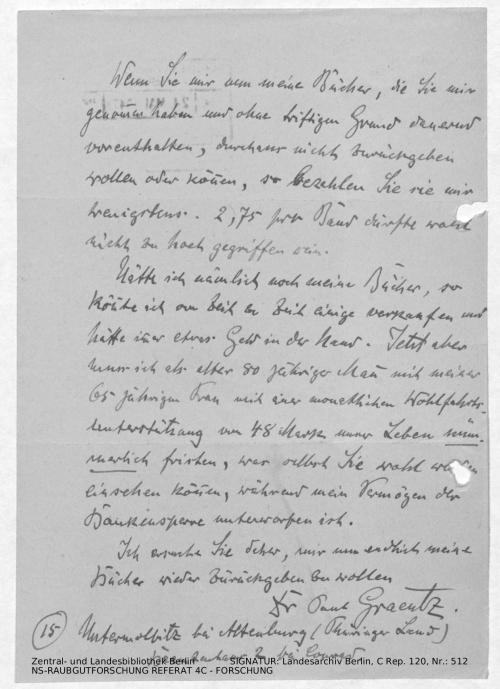 Wenn Sie mir nun meine Bücher, die Sie mir
genommen haben und ohne triftigen Grund dauernd
vorenthalten, durchaus nicht zurückgeben
wollen oder können, so bezahlen Sie sie mir
wenigstens. 2,75 pro Band dürfte wohl
nicht zu hoch gegriffen sein.
Hätte ich nämlich noch meine Bücher, so
könnte ich von Zeit zu Zeit einige verkaufen und
hätte immer etwas Geld in der Hand. Jetzt aber
muss ich als alter 80 jähriger Mann mit meiner
65 jährigen Frau mit einer monatlichen Wohlfahrts-
unterstützung von 48 Mark unser Leben küm-
merlich fristen, was selbst Sie wohl werden
einsehen können, während mein Vermögen der
Bankensperre unterworfen ist.
Ich ersuche Sie daher, mir nun endlich meine
Bücher wieder zurückgeben zu wollen
Dr Paul Graentz.
(15) Untermolbitz bei Altenburg (Thüringer Land)
bei
Zentral- und Landesbibliothek Berlin SIGNATUR: Landesarchiv Berlin, C Rep. 120, Nr.: 512
NS-RAUBGUTFORSCHUNG REFERAT 4C - FORSCHUNG